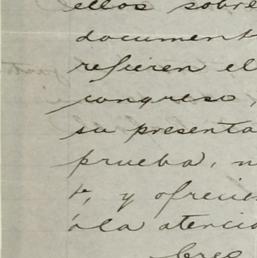 ellos sobre
document
refieren el
congreso,
su presenta
prueba, n
t, y ofrecie
á la atenció
bres